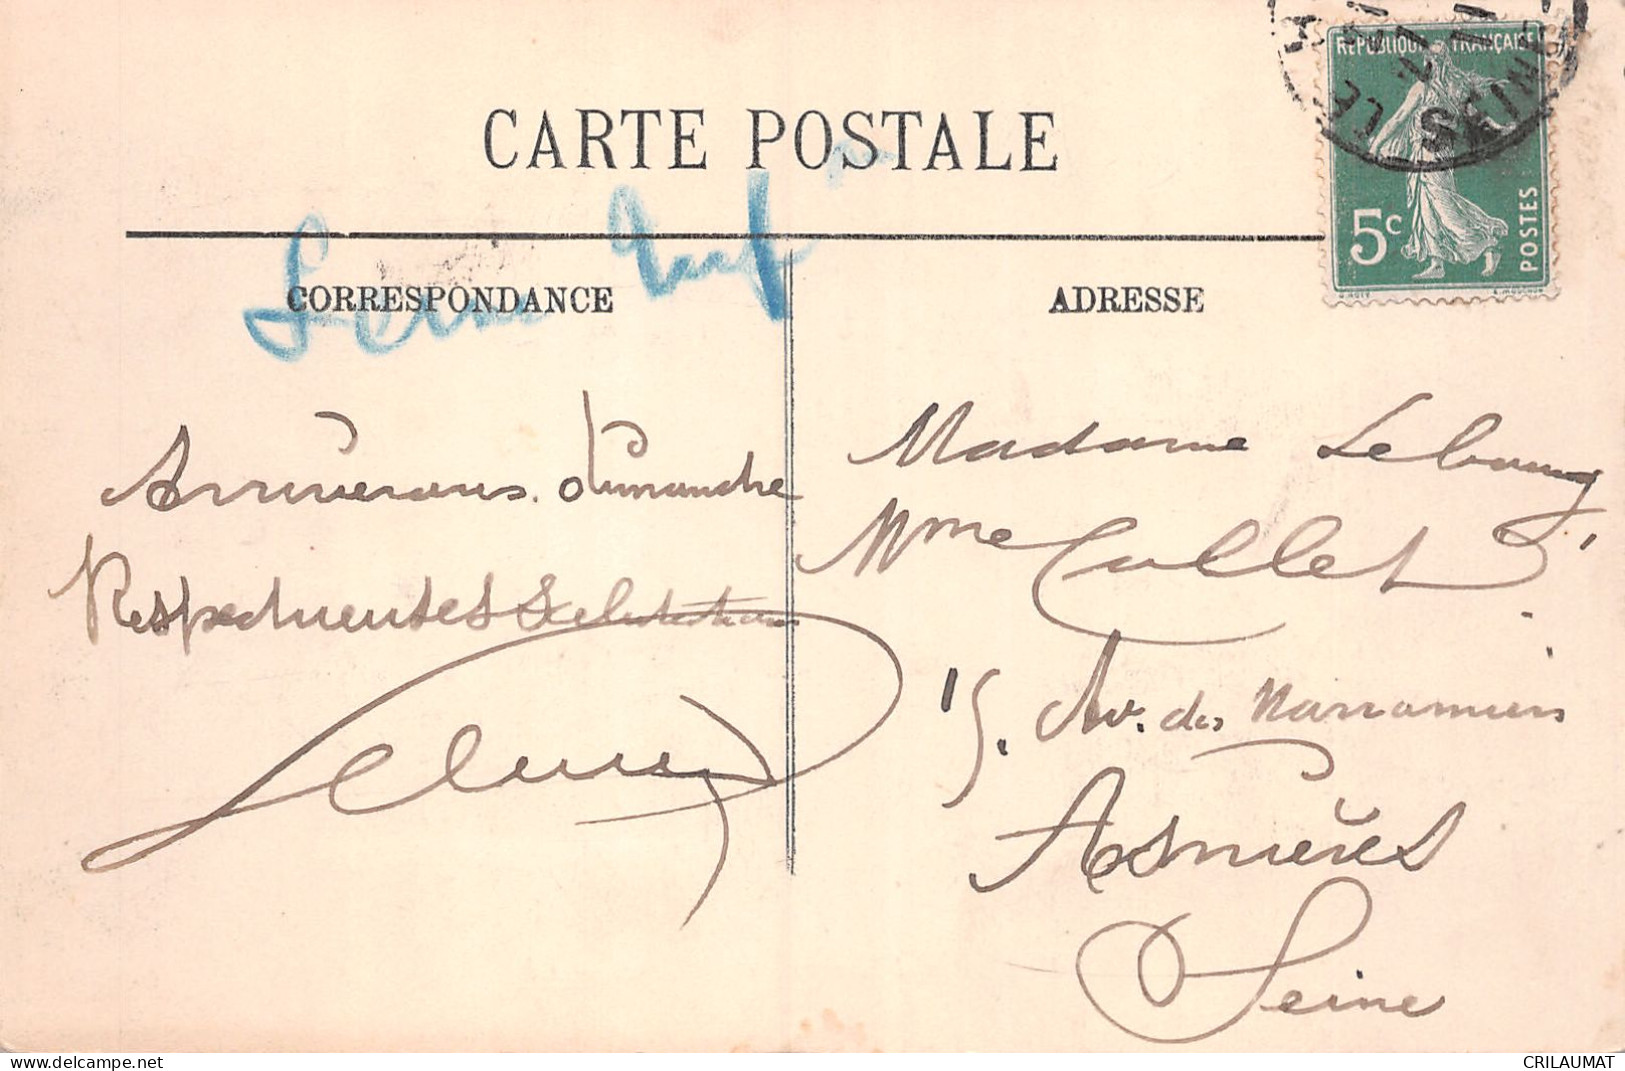 CARTE POSTALE
REPUBLIQUE FRANÇAISE
5c
POSTES
LE
SEINE
Seine Inf
CORRESPONDANCE
ADRESSE
Arriverons dimanche
Respectueuses Salutations
Madame Lebourg
Mme Collet
15. Av. des
Asnières
Seine
www.delcampe.net
CRILAUMAT